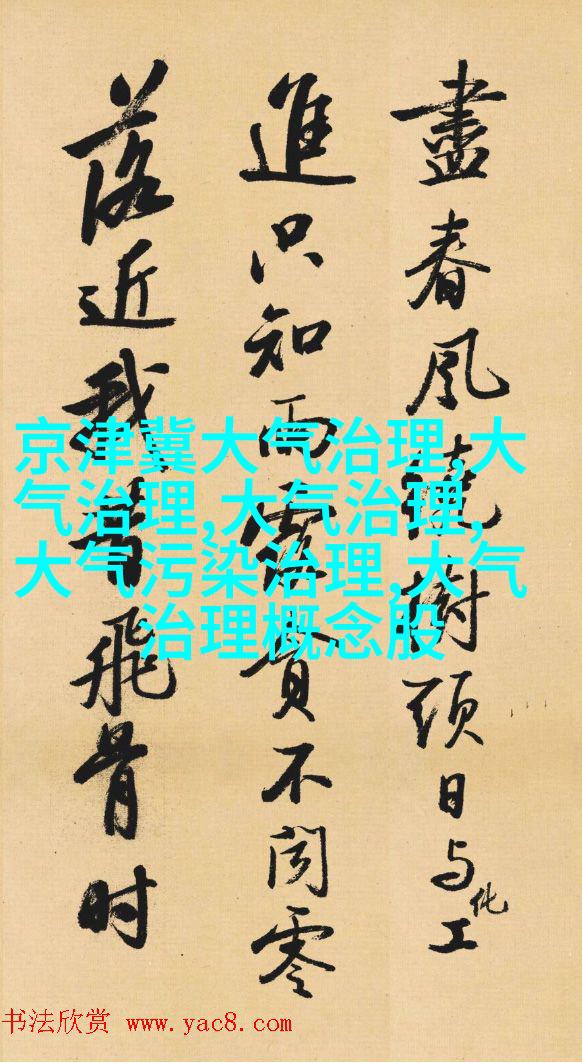 盡春風繞樹頭日与化工
進只知雨露貪不聞零
落近我昔飛骨时
京津冀大气治理,大
气治理,大气治理,
大气污染治理,大气
治理概念股
书法欣赏 www.yac8.com